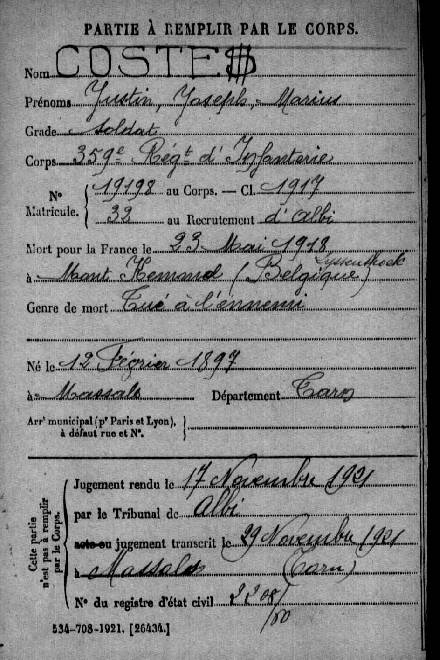 PARTIE À REMPLIR PAR LE CORPS.
Nom COSTE
Prénoms Justin, Joseph, Marius
Grade soldat
Corps 359e Régt d'Infanterie
N° Matricule. 19198 au Corps. — Cl. 1917
33 au Recrutement d'Albi
Mort pour la France le 23 Mai 1918
à Mont Kemmel (Belgique)
Genre de mort Tué à l'ennemi
Né le 12 Février 1897
à Massals Département Tarn
Arrt municipal (pr Paris et Lyon),
à défaut rue et N°.
Cette partie n'est pas à remplir par le Corps.
Jugement rendu le 17 Novembre 1921
par le Tribunal de Albi
acte ou jugement transcrit le 29 Novembre 1921
à Massals (Tarn)
N° du registre d'état civil
534-708-1921. [26434.]